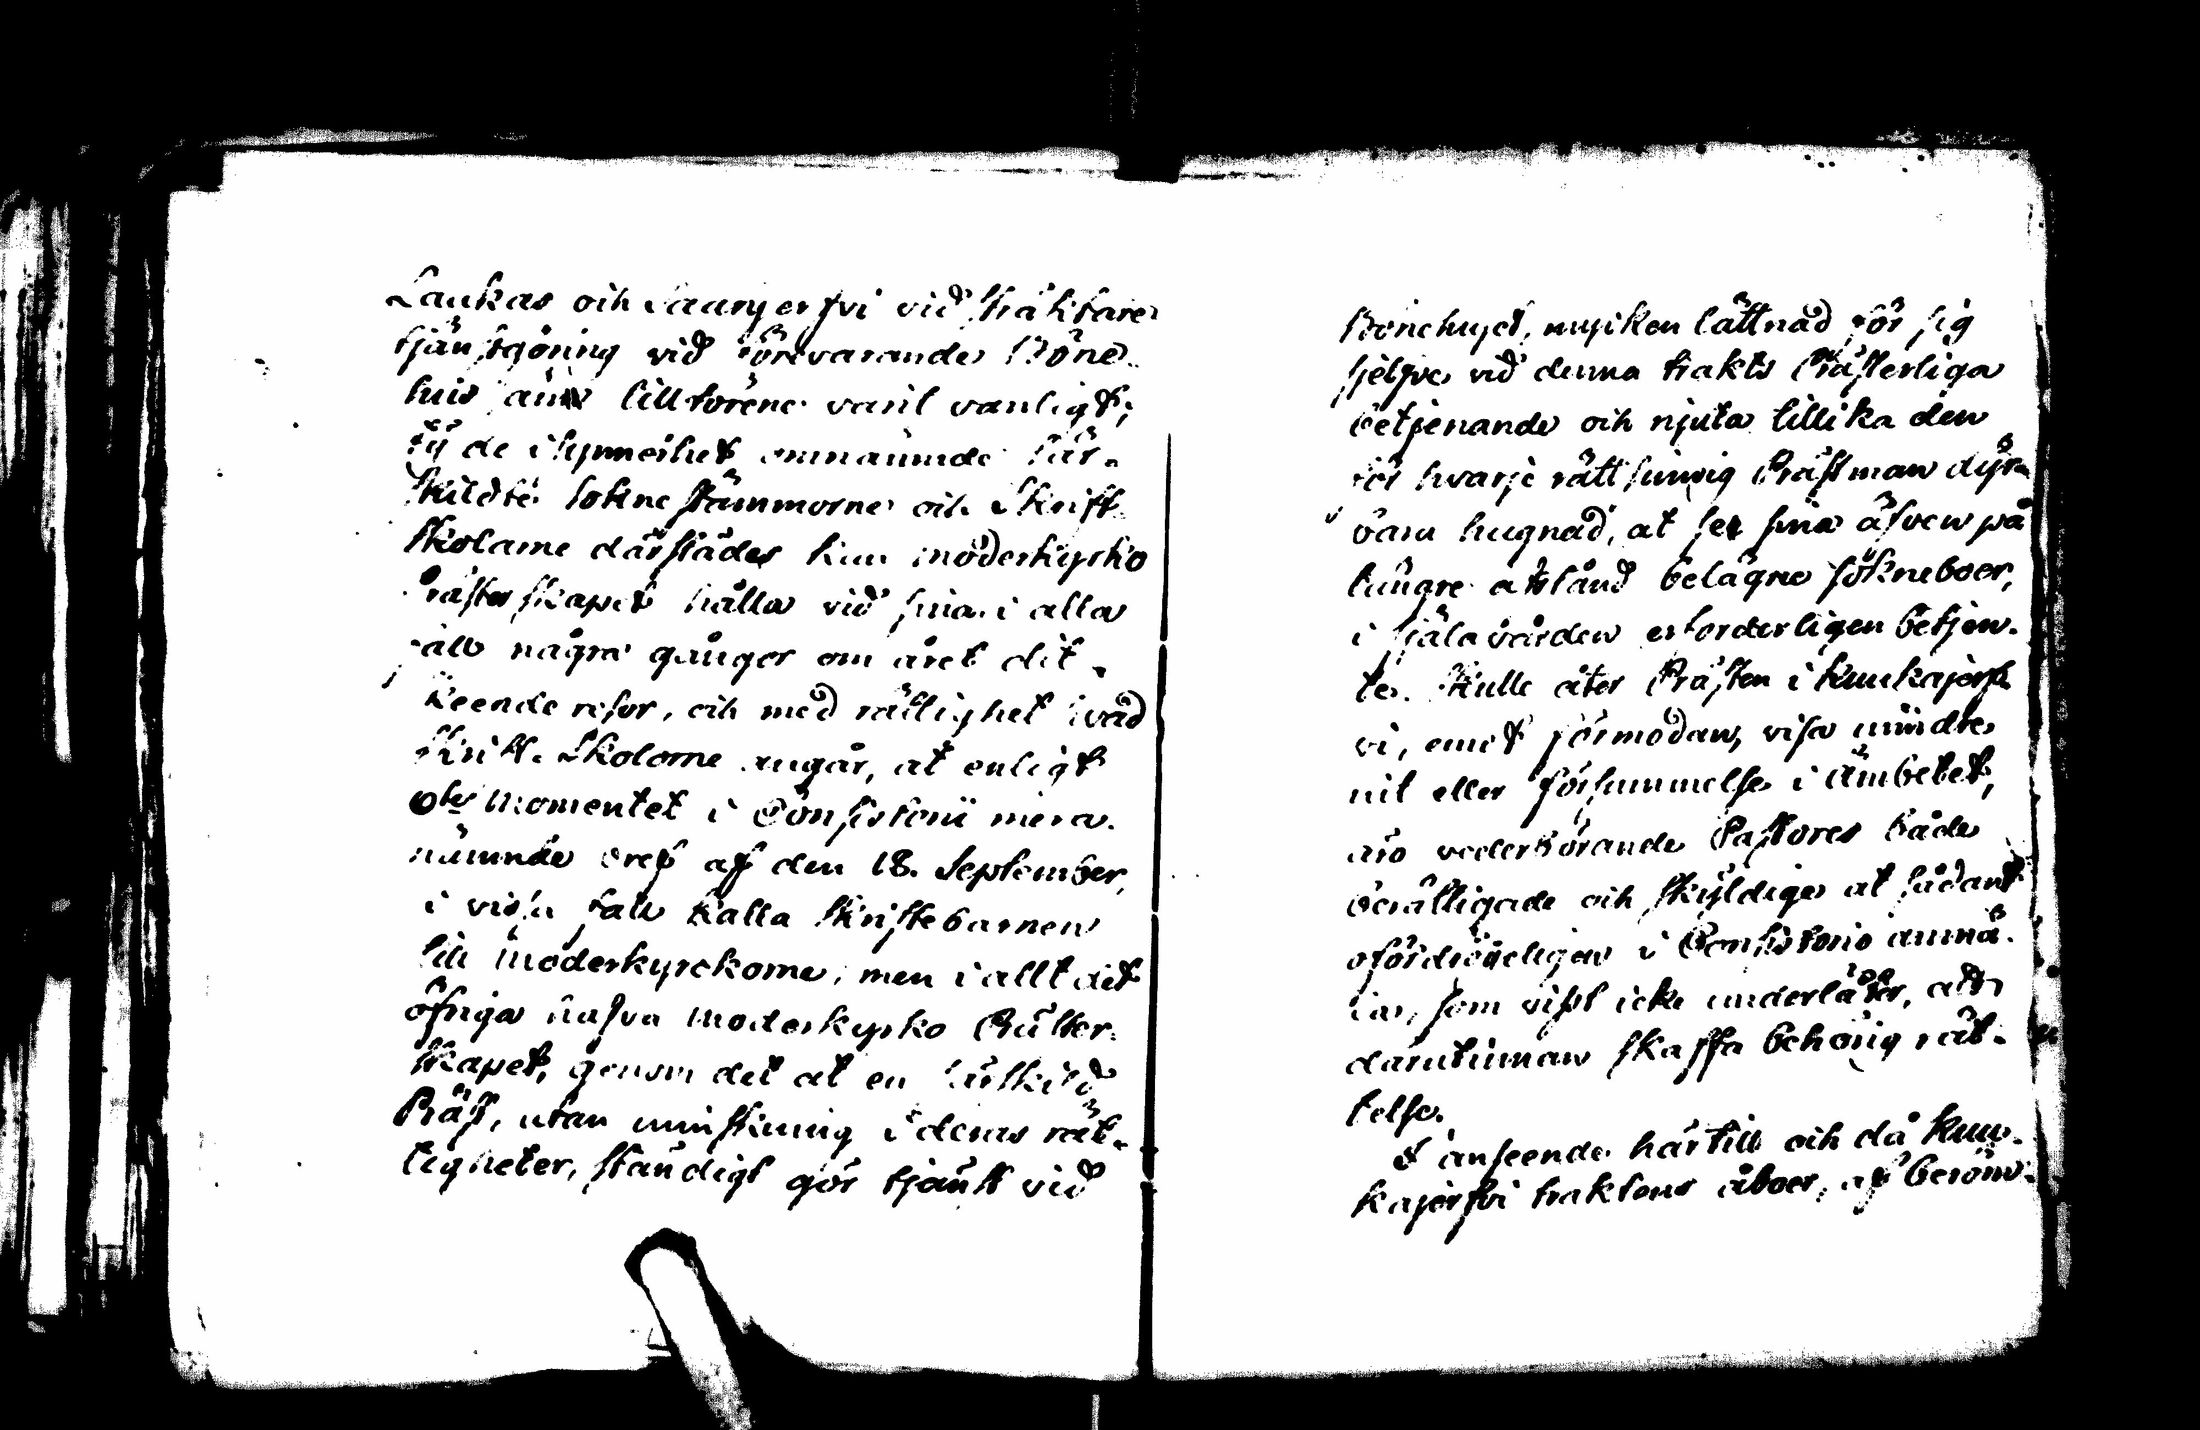 Laukas och Saarjerfvi vid sträktare
tjänstgöring vid förevarande Böne-
huis än tillförene varit vanligt;
ty de i hymeihet omnämnde sär-
skildte sokne stämmorne och Skrift
skolarne därstädes kun moderkyrko
Prästerskapet hålla vid sina i alla
fall några gånger om året dit
skeende resor, och med rättighet hvad
Skrift Skolorne angår, at enligt
6te Momentet i Consistorii mera
nämnde bref af den 18. September,
i vissa fall kalla Skriftebarnen
till moderkyrckorne, men i allt det
öfriga hafva moderkyrko Präster-
skapet, genom det at en särskild
Präst, utan minskning i deras rät-
tigheter, ständigt gör tjänst vid
Bönehuset, mycken lättnad för sig
sjelfve vid denna trakts Prästerliga
betjenande och njuta tillika den
för hvarje rättsinnig Prästman dyr-
bara hugnad, at se sina äfven på
längre afstånd belägne sökneboer,
i själavården erforderligen betjen-
te. Skulle åter Prästen i Kiukajerf-
vi, emot förmodan, visa mindre
nit eller försummelse i ämbetet,
äro vederbörande Pastores både
berättigade och skyldige at sådant
ofördröjeligen i Consistorio anmä-
la, som visst icke underlåter, at
därutinnan skaffa behörig rät-
telse.
I anseende härtill och då Kiu-
kajerfvi traktens åboer, af beröm-